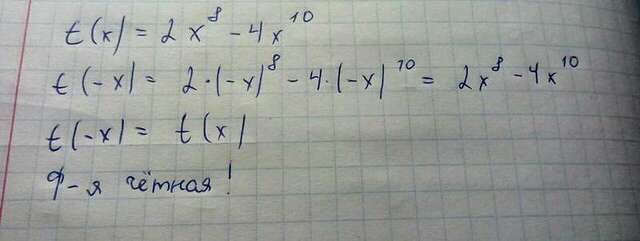 t(x) = 2x⁸ - 4x¹⁰
t(-x) = 2·(-x)⁸ - 4·(-x)¹⁰ = 2x⁸ - 4x¹⁰
t(-x) = t(x)
Ф-я чётная!